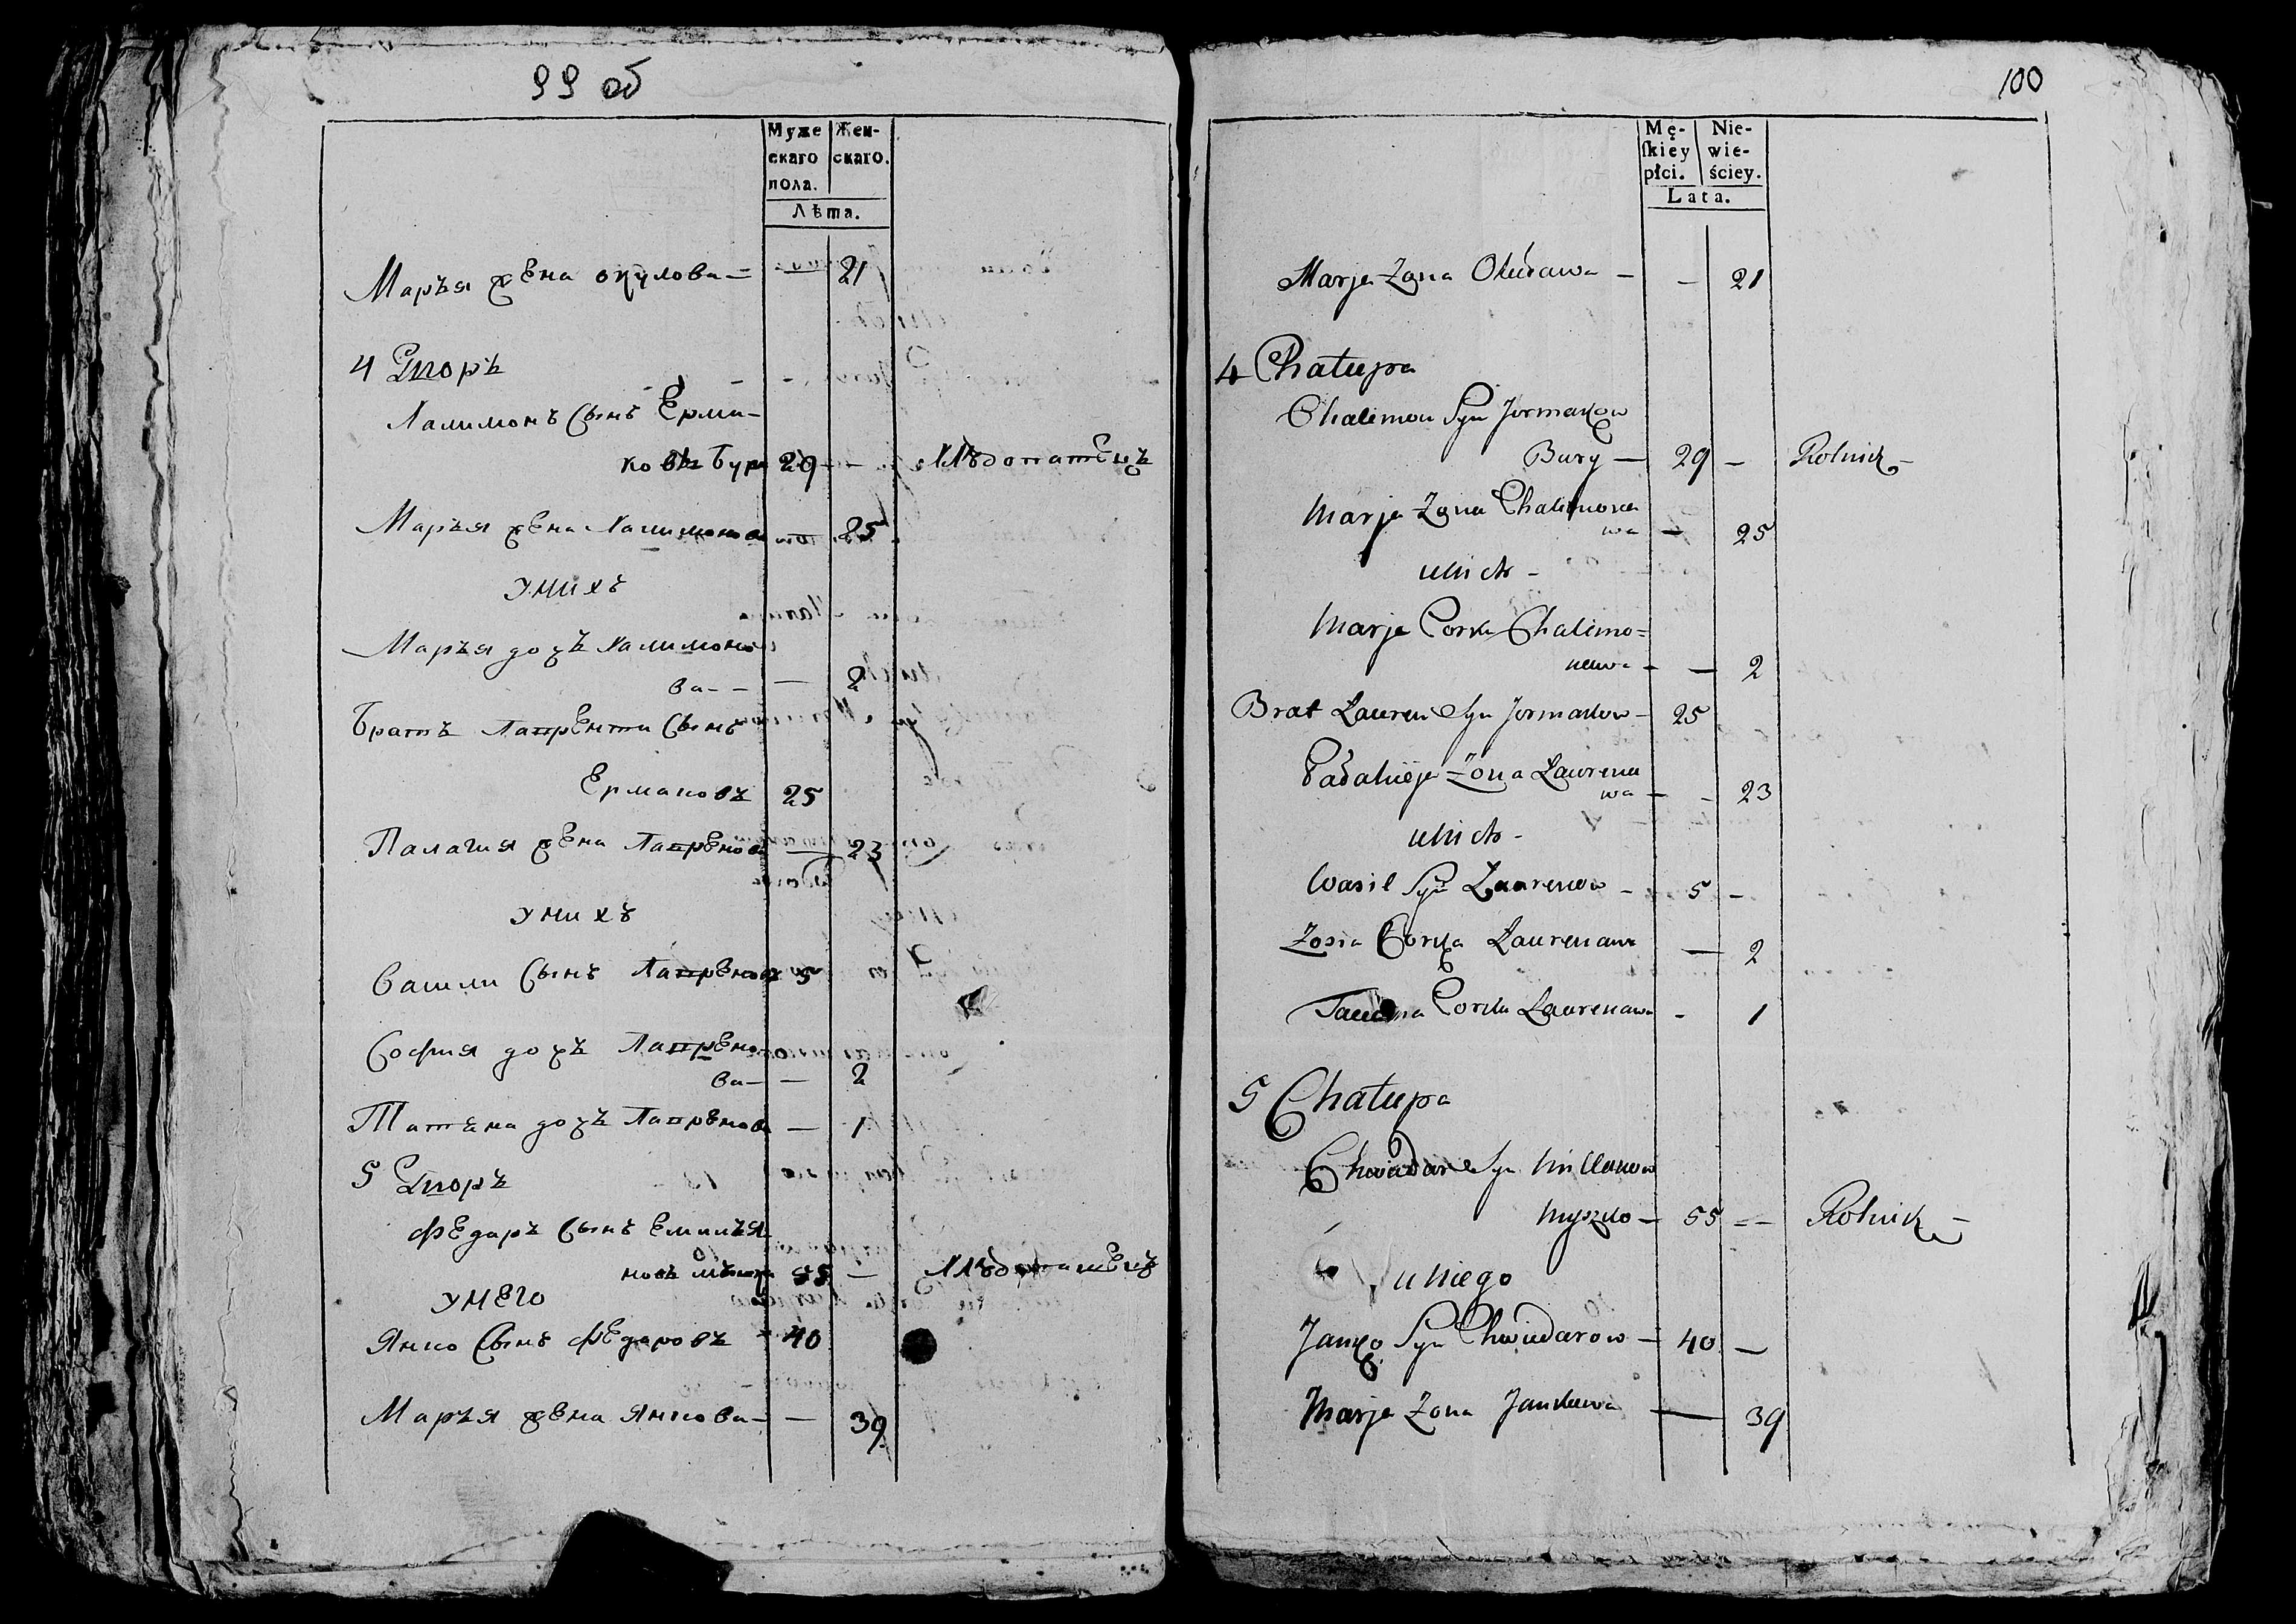 99 об
Муже Жен-
скаго скаго.
пола.
Лѣта.
Марья жена окулова — — 21
4 Дворъ
Халимонъ Сынъ Ерма-
ковъ Бура 29 — Хлѣбопашецъ
Марья жена Халимонова — 25
У нихъ
Марья дочь Халимоно
ва — — 2
Братъ Лавренти Сынъ
Ермаковъ 25
Палагия жена Лавренова — 23
У нихъ
Васили Сынъ Лавреновъ 5
София дочь Лаврено
ва — — 2
Татяна дочь Лавренова — 1
5 Дворъ
Федаръ Сынъ Емилья
новъ 55 — Хлѣбопашецъ
У него
Янко Сынъ Федаровъ 40
Марья жена Янкова — — 39
100
Mę- Nie-
ſkiey wie-
płci. ściey.
Lata.
Marja Zona Okułowa — — 21
4 Chałupa
Chalimon Syn Jormakow
Bury — 29 — Rolnik —
Marja Zona Chalimona
wa — 25
u nich —
Marja Corka Chalimo=
nowa — — 2
Brat Lauren Syn Jormakow — 25
Pałahieja Zona Laurena
wa — — 23
u nich —
Wasil Syn Laurenow — 5 —
Zosia Corka Laurenawa — 2
Taciana Corka Laurenawa — 1
5 Chałupa
Chwiadar Syn
Myszko — 55 — — Rolnik —
u niego
Janko Syn Chwiedarow — 40 —
Marja Zona Jankowa — 39